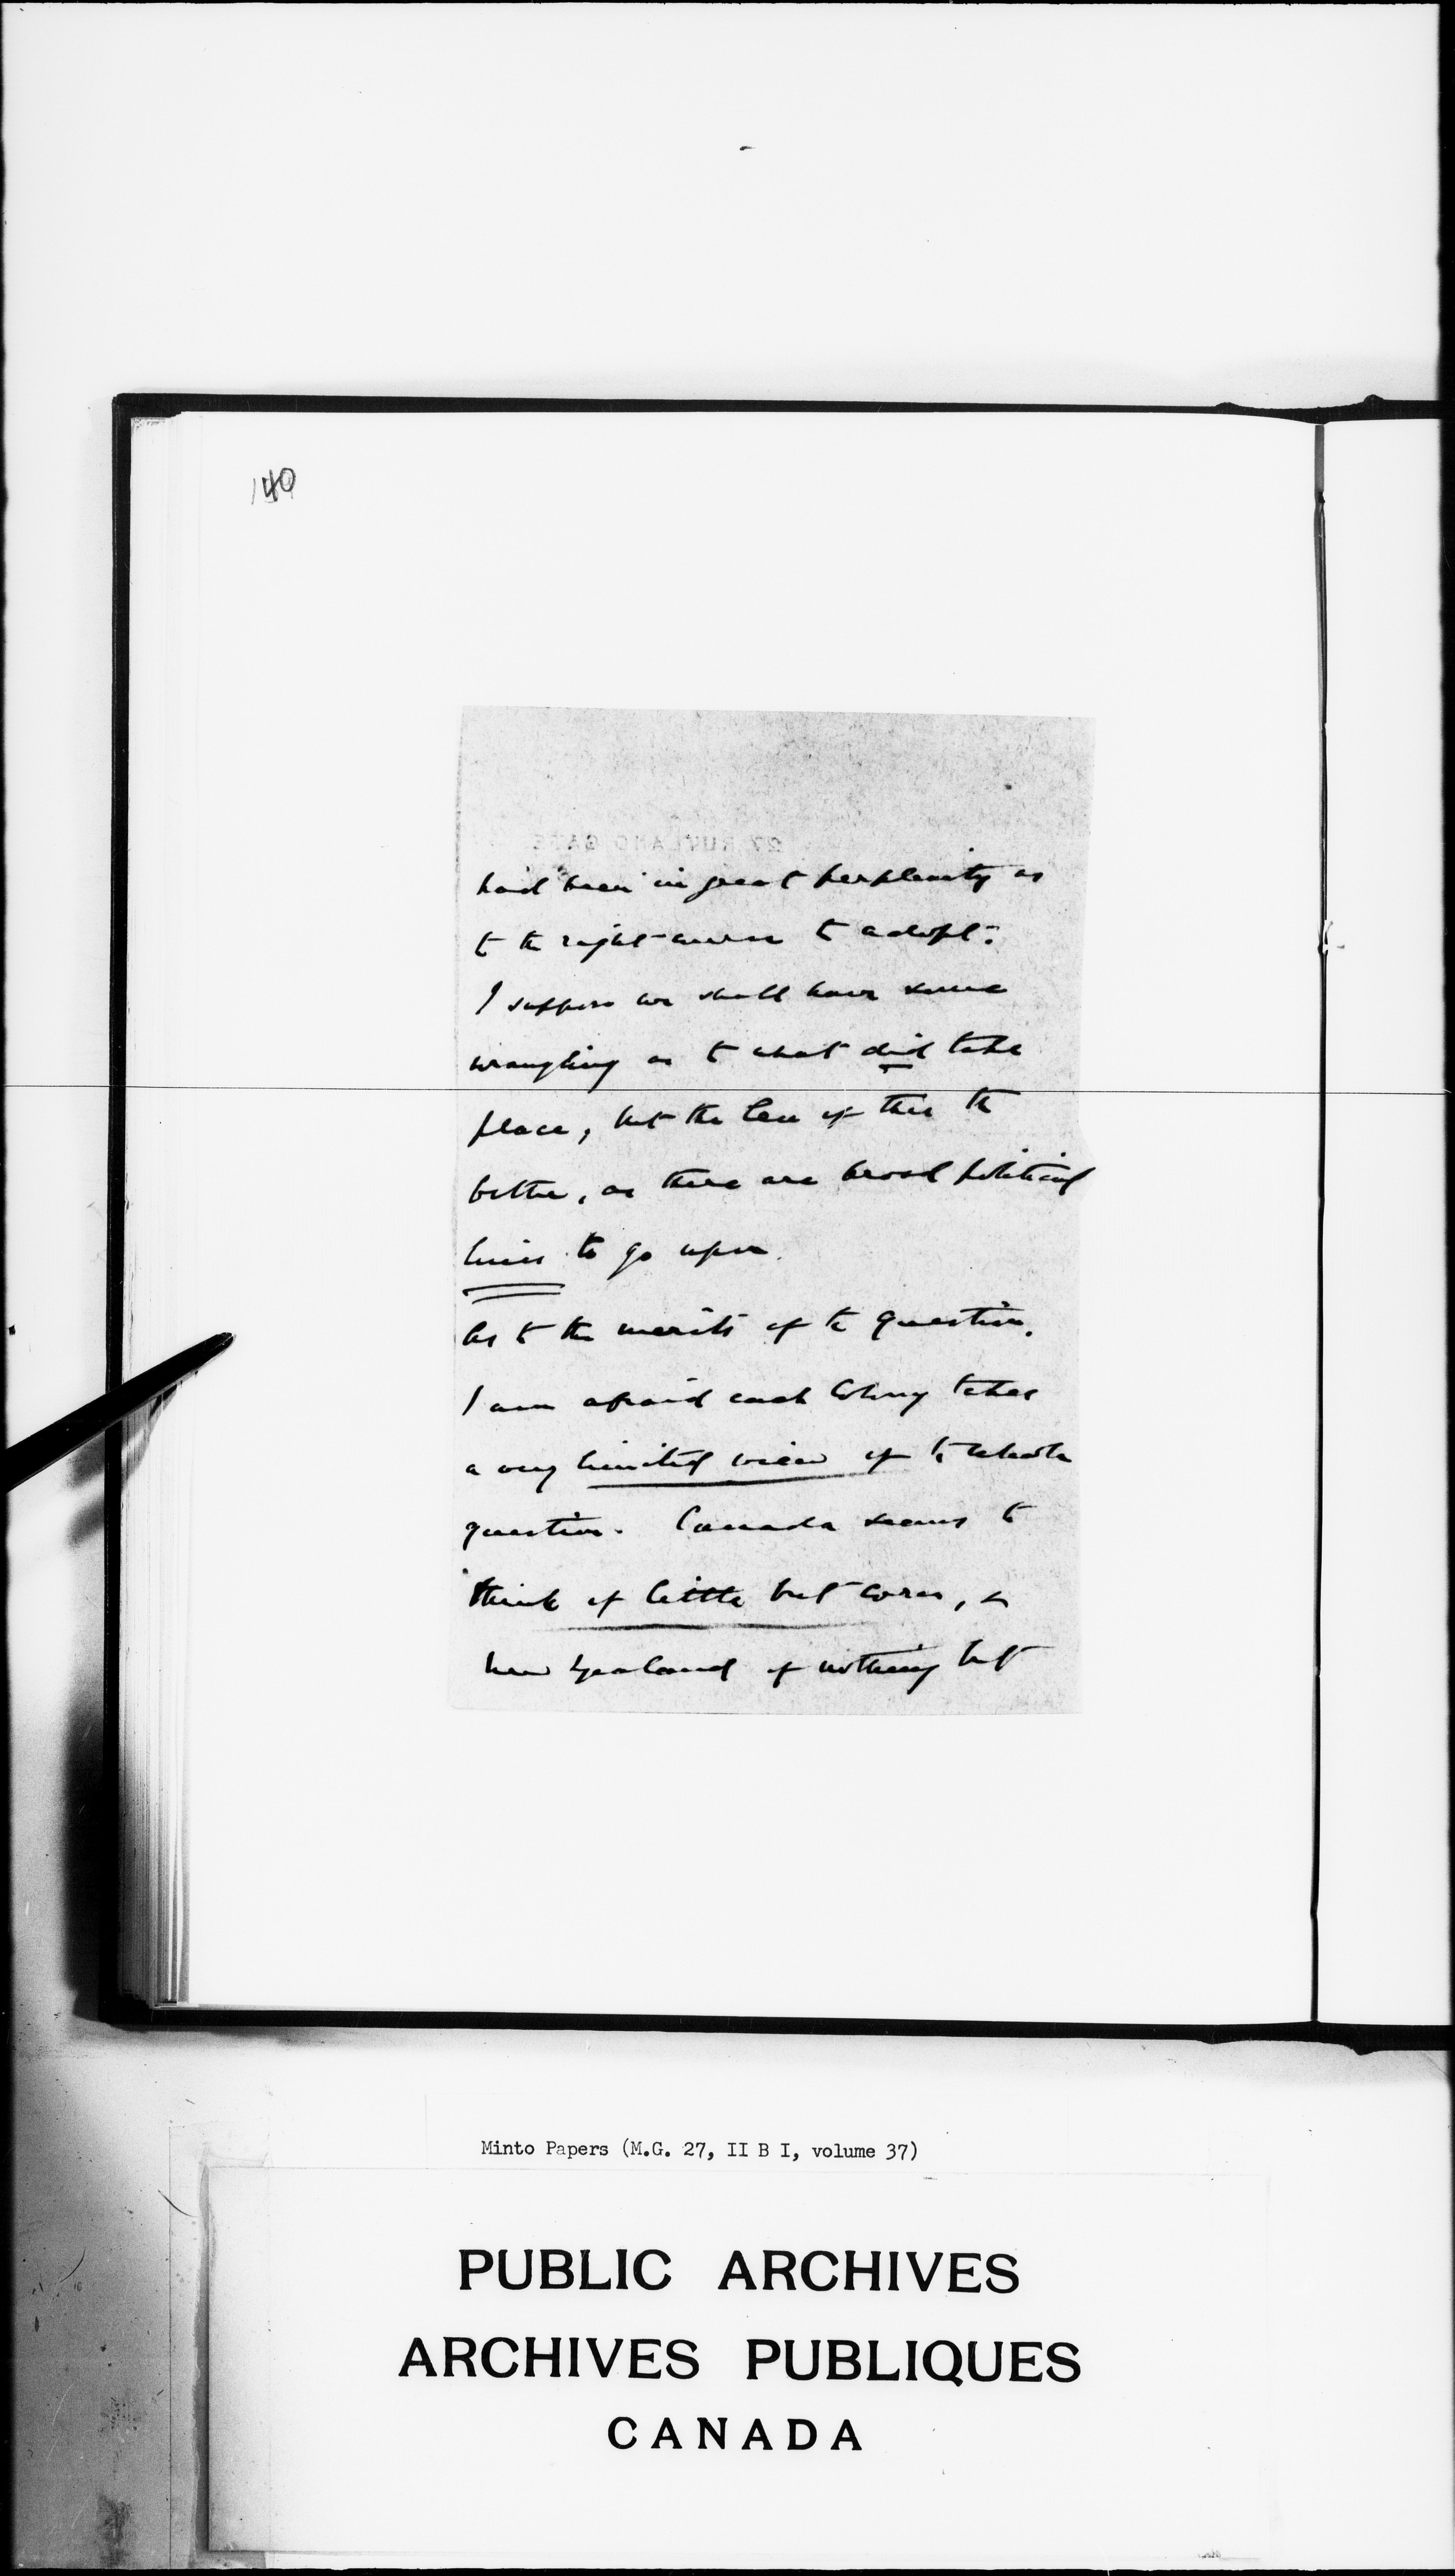 140
27 RUTLAND GATE
had been in great perplexity as
to the right course to adopt.
I suppose we shall have some
wrangling as to what did take
place, but the less of this the
better, as there are broad political
lines to go upon.
As to the merits of the question,
I am afraid each Colony takes
a very limited view of the whole
question. Canada seems to
think of little but corn, &
New Zealand of nothing but
Minto Papers (M.G. 27, II B I, volume 37)
PUBLIC ARCHIVES
ARCHIVES PUBLIQUES
CANADA